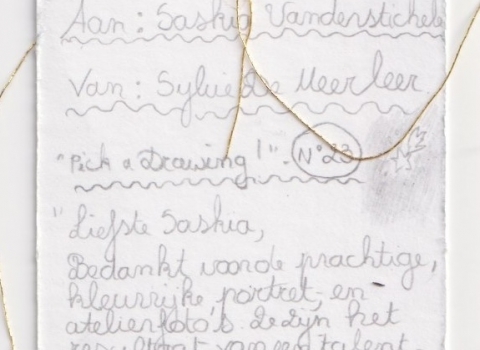 Aan: Saskia Vanderstichele
Van: Sylvie De Meerleer.
"Pick a Drawing!". N°23
"Liefste Saskia,
Bedankt voor de prachtige,
kleurrijke portret- en
atelierfoto's. Ze zijn het
resultaat van een talent